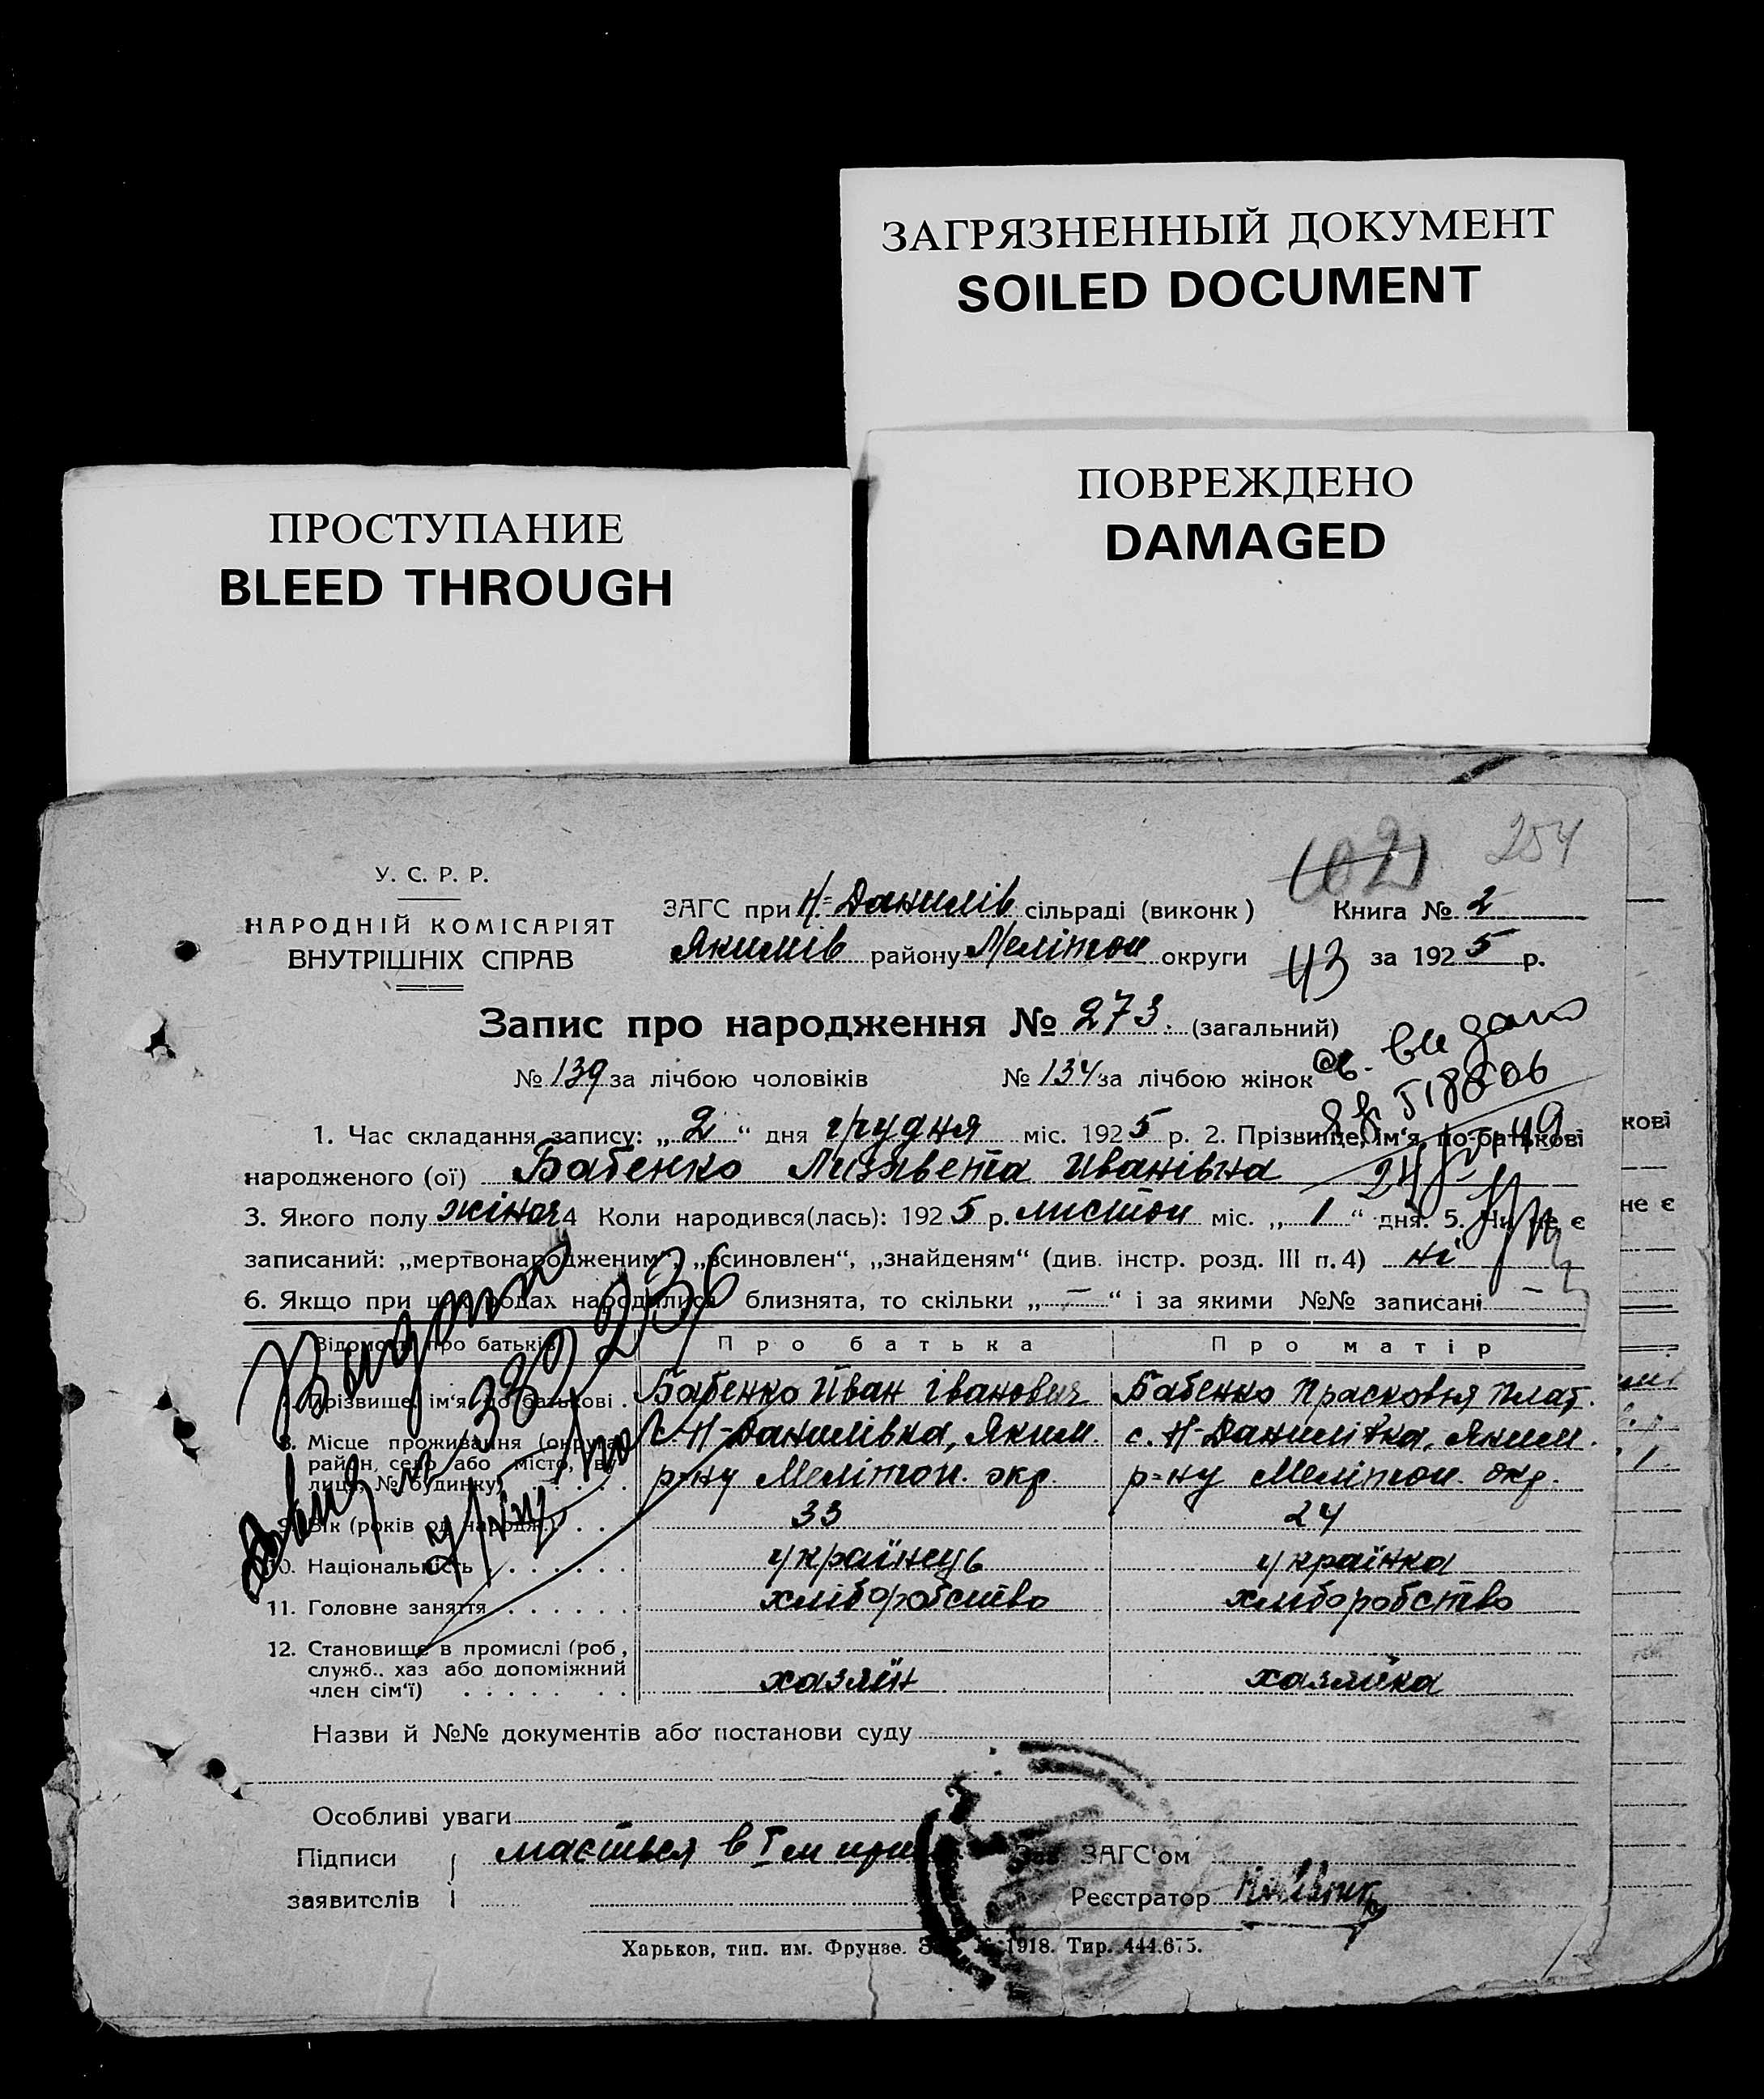 ЗАГРЯЗНЕННЫЙ ДОКУМЕНТ
SOILED DOCUMENT
ПРОСТУПАНИЕ
BLEED THROUGH
ПОВРЕЖДЕНО
DAMAGED
102 254
У. С. Р. Р.
НАРОДНІЙ КОМІСАРІЯТ
ВНУТРІШНІХ СПРАВ
ЗАГС при Н-Данилів сільраді (виконк) Книга № 2
Якимів району Мелітоп округи 43 за 1925 р.
Запис про народження № 273. (загальний)
№ 139 за лічбою чоловіків № 134 за лічбою жінок
св. выдано
1. Час складання запису: „2“ дня грудня міс. 1925 р. 2. Прізвище, ім'я, по-батькові
народженого (ої) Бабенко Лизавета Иванівна
3. Якого полу жіноч 4 Коли народився(лась): 1925 р. листоп міс. „1“ дня. 5. Чи не є
записаний: „мертвонародженим“, „всиновлен“, „знайденям“ (див. інстр. розд. III п. 4) ні
6. Якщо при цих родах народилися близнята, то скільки „—“ і за якими №№ записані —
Відомості про батьків Про батька Про матір
7. Прізвище, ім'я, по батькові . Бабенко Иван Іванович Бабенко Прасковья Плат.
8. Місце проживання (округа, с. Н-Данилівка, Яким. с. Н-Данилівка, Яким.
район, село або місто, ву-
лиця, № будинку) р-ну Мелітоп. окр. р-ну Мелітоп. окр.
9. Вік (років од народж.) . . 33 24
10. Національність . . . . . . українець українка
11. Головне заняття . . . . . . хліборобство хліборобство
12. Становище в промислі (роб.,
служб.. хаз або допоміжний
член сім'ї) . . . . . . . хазяїн хазяйка
Назви й №№ документів або постанови суду
Особливі уваги
Підписи маються в І м ЗАГС'ом
заявителів Реєстратор
Харьков, тип. им. Фрунзе. 1918. Тир. 444.675.